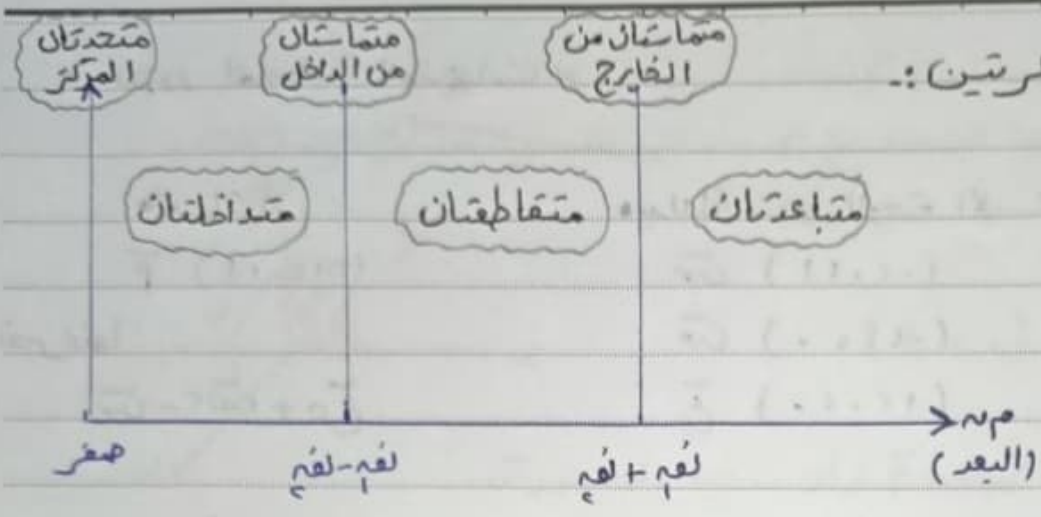 رتين :-
متماستان من
الخارج
متماستان
من الداخل
متحدتان
المركز
متباعدتان
متقاطعتان
متداخلتان
م ن
(البعد)
نق١ + نق٢
نق١ - نق٢
صفر